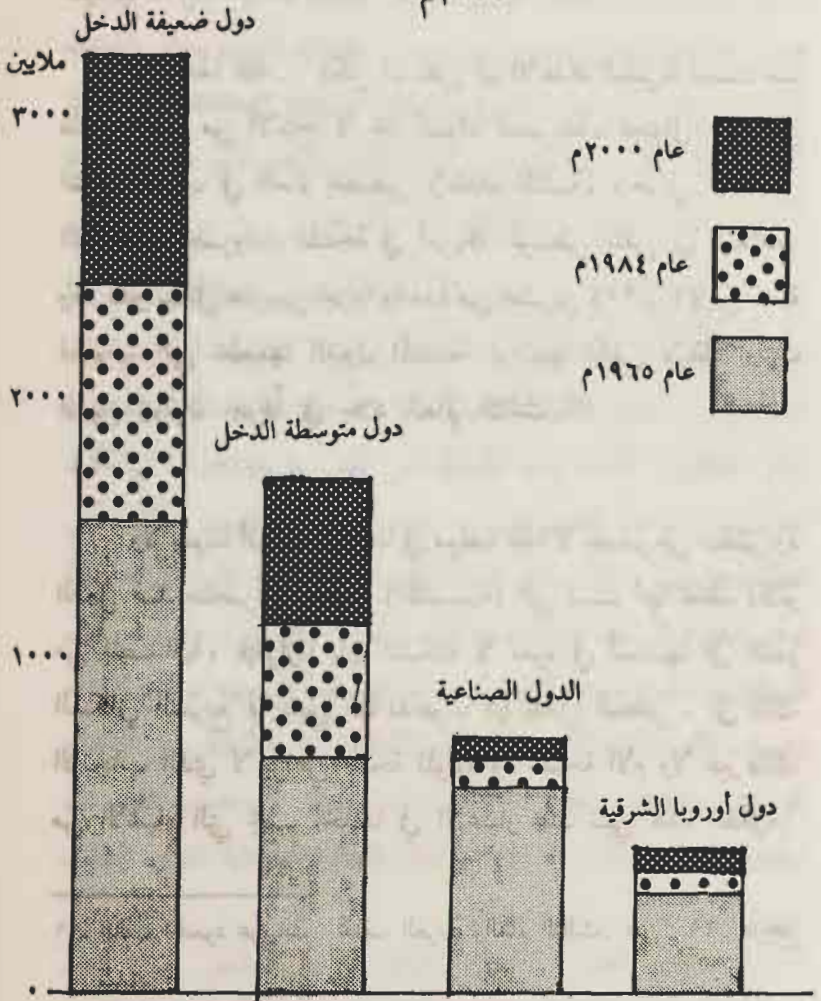 دول ضعيفة الدخل
ملايين
٣٠٠٠
عام ٢٠٠٠م
عام ١٩٨٤م
عام ١٩٦٥م
٢٠٠٠
دول متوسطة الدخل
١٠٠٠
الدول الصناعية
دول أوروبا الشرقية
٠